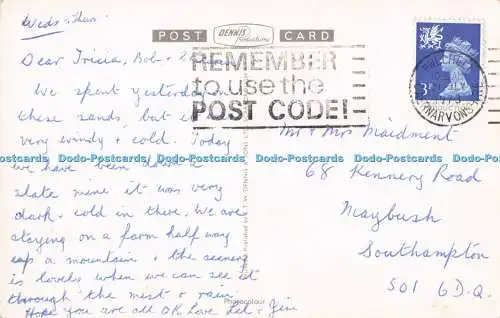 Weds
POST DENNIS Productions CARD
REMEMBER
to use the
POST CODE!
3P
Dear Tricia, Bob +
We spent yesterday
these sands, but
very windy + cold. Today
we have been down a
slate mine it was very
dark + cold in there, We are
staying on a farm half way
up a mountain + the scenery
is lovely when we can see it
through the mist + rain
Hope you are all O.K. Love
Photocolour
Mr + Mrs Maidment
68 Kennery Road
Maybush
Southampton
SO1 6D.Q.
Dodo-Postcards / Dodo-Postcards / Dodo-Postcards / Dodo-Postcards / Dodo-Postcards